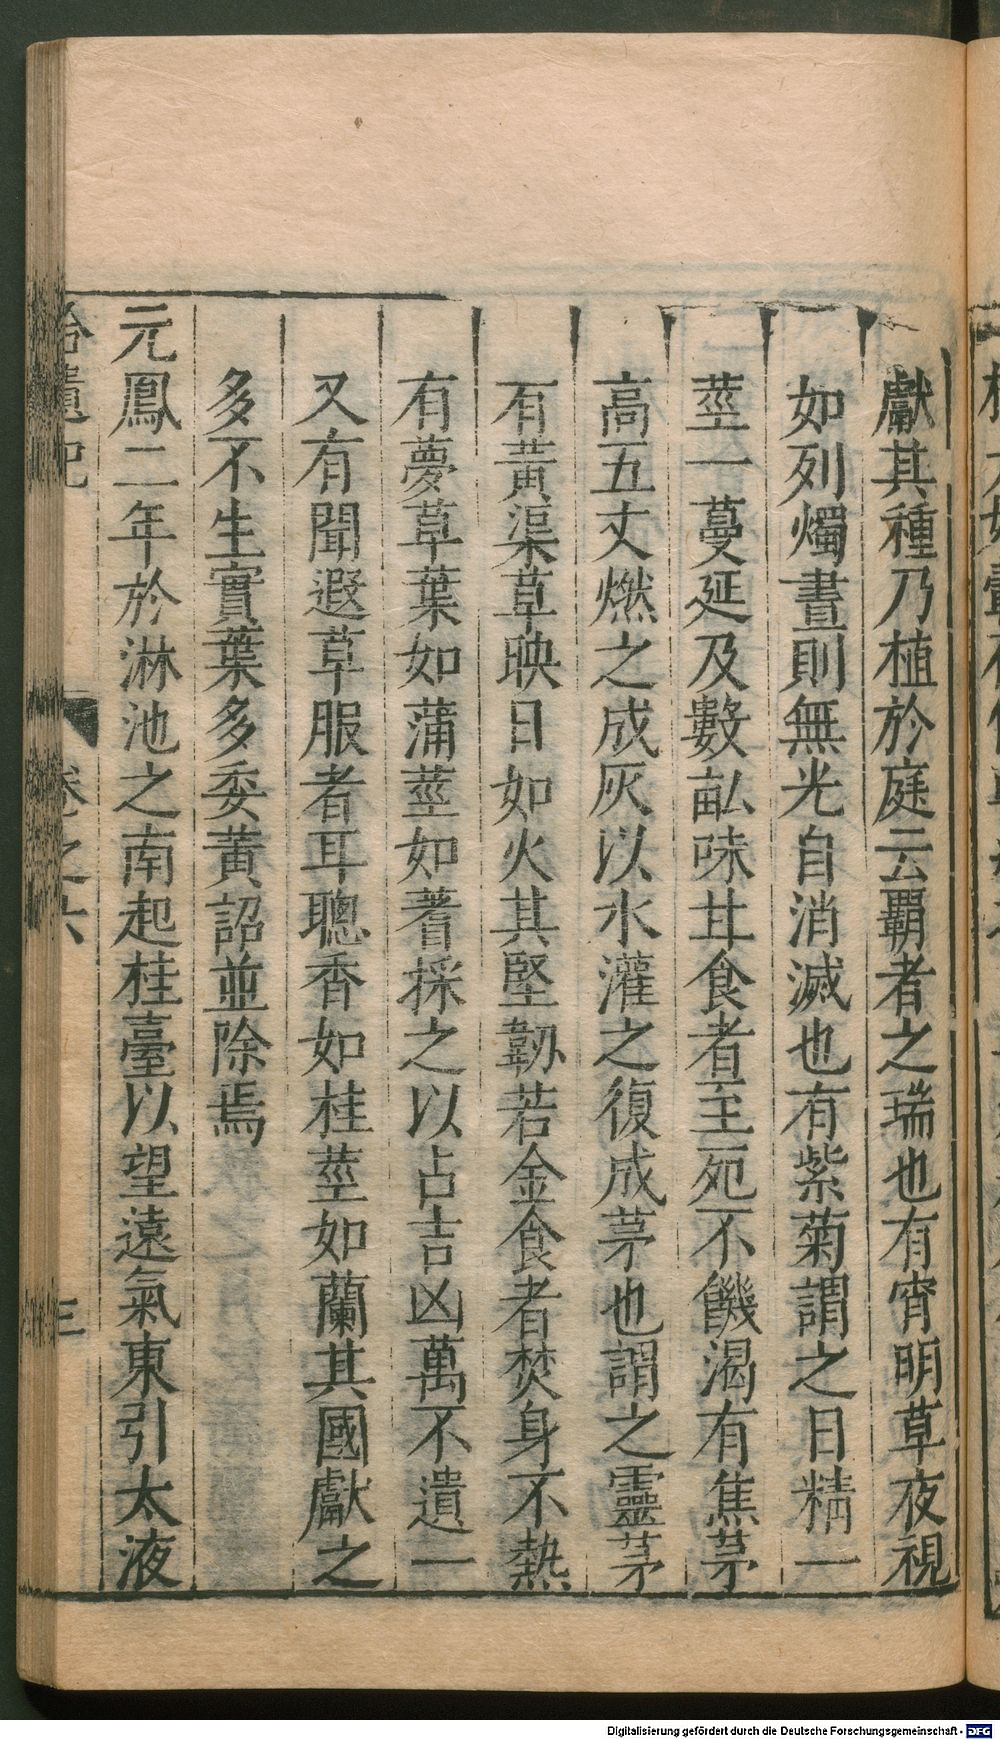 獻其種乃植於庭云覇者之瑞也有宵明草夜視
如列燭晝則無光自消滅也有紫菊謂之日精一
莖一蔓延及數畝味甘食者至死不饑渴有焦茅
高五丈燃之成灰以水灌之復成茅也謂之靈茅
有黃渠草映日如火其堅韌若金食者焚身不熱
有夢草葉如蒲莖如蓍採之以占吉凶萬不遺一
又有聞遐草服者耳聰香如桂莖如蘭其國獻之
多不生實葉多委黃詔並除焉
元鳳二年於淋池之南起桂臺以望遠氣東引太液
拾遺記 卷之六 三
Digitalisierung gefördert durch die Deutsche Forschungsgemeinschaft - DFG